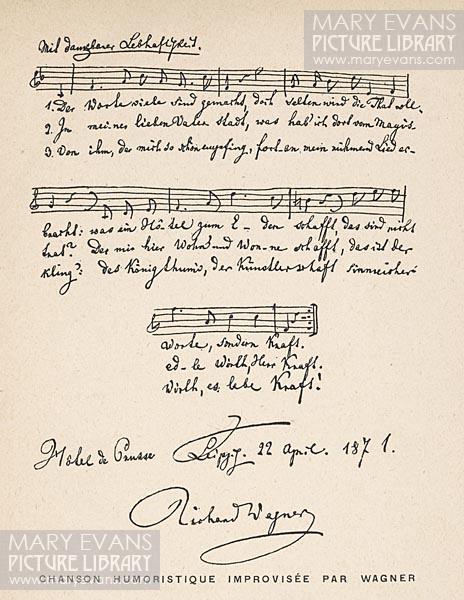 MARY EVANS
PICTURE LIBRARY
www.maryevans.com
Mit dankbarer Lebhaftigkeit.
1. Der Worte viele sind gemacht, doch selten wird die That voll-
2. In meiner lieben Vater stadt, was hab' ich dort vom Magis-
3. Von ihm, der mich so schön empfing, fort an mein rühmend Lied er-
bracht: was ein Hô-tel zum E-den schafft, das sind nicht
trat? Der mir hier Wohn und Won-ne schafft, das ist der
kling': des Königthum's, der Künstlerschaft sinnreicher
Worte, sondern Kraft.
ed-le Wirth, Herr Kraft.
Wirth, es lebe Kraft!
Hôtel de Prusse Leipzig. 22 April. 1871.
Richard Wagner
MARY EVANS
PICTURE LIBRARY
www.maryevans.com
CHANSON HUMORISTIQUE IMPROVISÉE PAR WAGNER